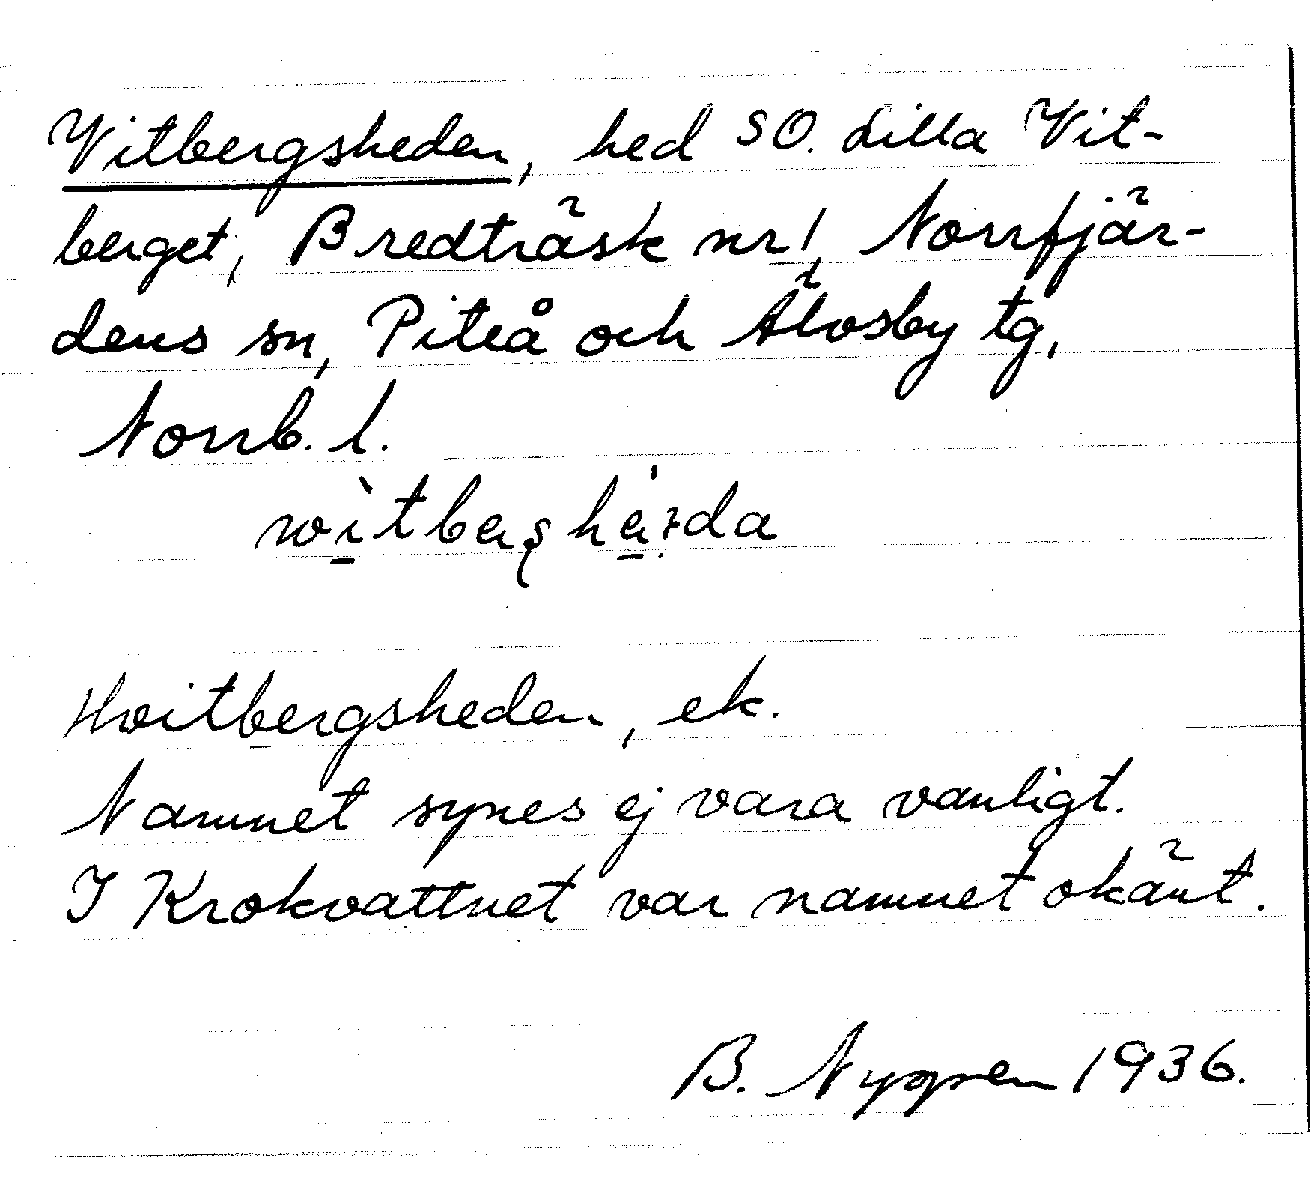 Vitbergsheden, hed SO. Lilla Vit-
berget, Bredträsk nr 1, Norrfjär-
dens sn, Piteå och Älvsby tg,
Norrb. l.
Hvitbergsheden, ek.
Namnet synes ej vara vanligt.
I Krokvattnet var namnet okänt.
B. Nygren 1936.